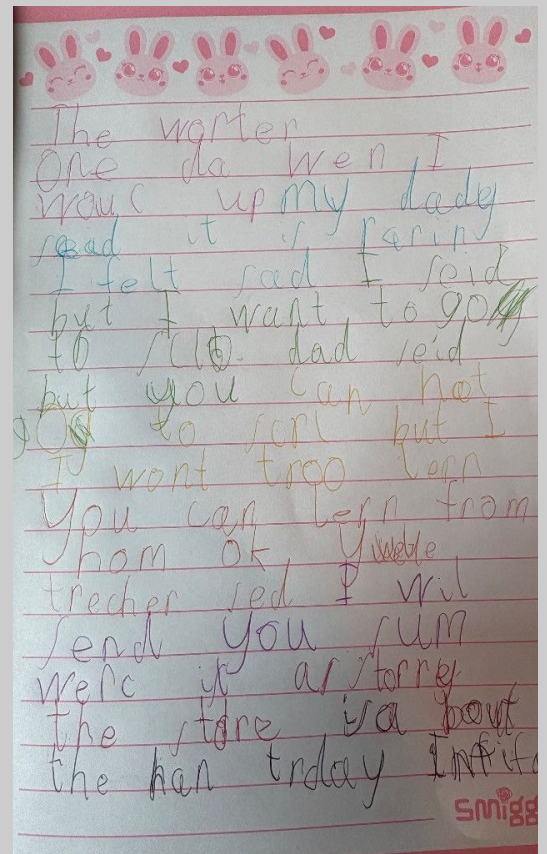 The warter
One da wen I
wouc up my dady
sead it is raring
I felt sad I seid
but I want to go
to scll dad seid
but you can not
go to scrl but I
I wont troo lern
You can lern from
hom ok Y
trecher sed I wil
send you sum
werc it as storrey
the store isa bout
the han trday
smigg